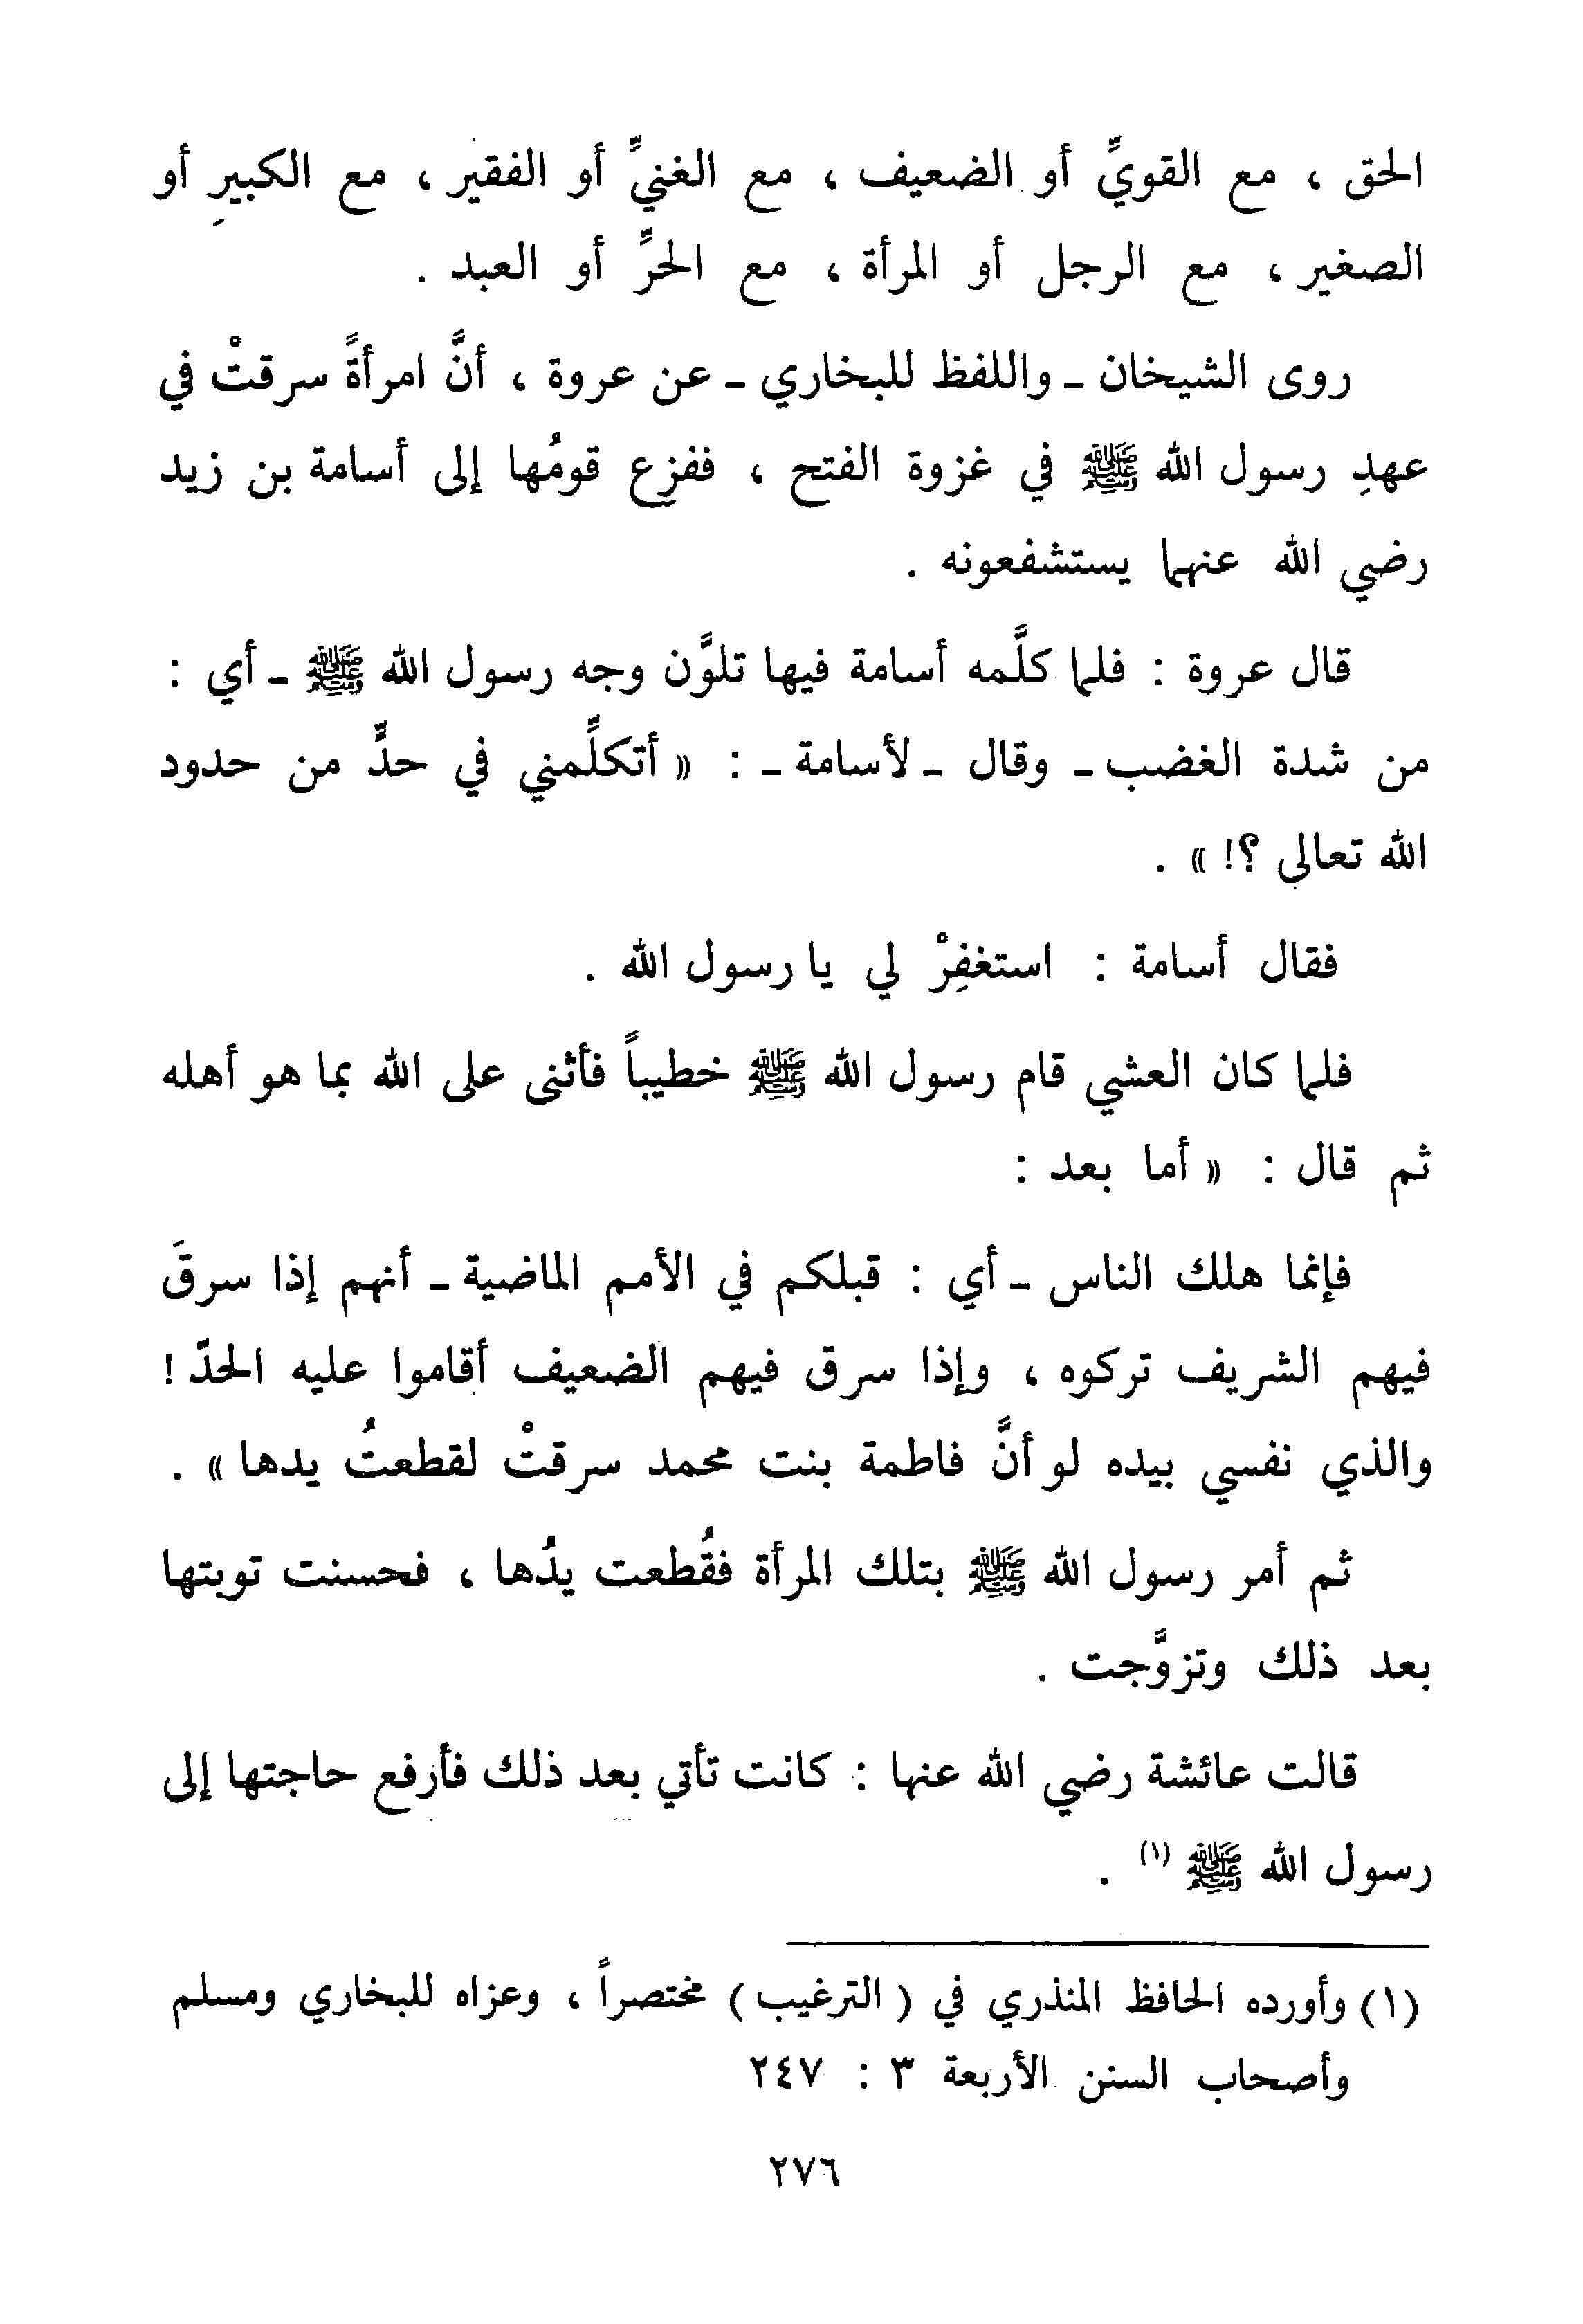 الحق ، مع القويِّ أو الضعيف ، مع الغنيِّ أو الفقير ، مع الكبيرِ أو
الصغير ، مع الرجل أو المرأة ، مع الحرِّ أو العبد .
روى الشيخان - واللفظ للبخاري - عن عروة ، أنَّ امرأةً سرقتْ في
عهدِ رسول الله ﷺ في غزوة الفتح ، ففزِع قومُها إلى أسامة بن زيد
رضي الله عنهما يستشفعونه .
قال عروة : فلما كلَّمه أسامة فيها تلوَّن وجه رسول الله ﷺ - أي :
من شدة الغضب - وقال - لأسامة - : « أتكلِّمني في حدٍّ من حدود
الله تعالى ؟! » .
فقال أسامة : استغفِرْ لي يا رسول الله .
فلما كان العشي قام رسول الله ﷺ خطيباً فأثنى على الله بما هو أهله
ثم قال : « أما بعد :
فإنما هلك الناس - أي : قبلكم في الأمم الماضية - أنهم إذا سرقَ
فيهم الشريف تركوه ، وإذا سرق فيهم الضعيف أقاموا عليه الحدّ !
والذي نفسي بيده لو أنَّ فاطمة بنت محمد سرقتْ لقطعتُ يدها » .
ثم أمر رسول الله ﷺ بتلك المرأة فقُطعت يدُها ، فحسنت توبتها
بعد ذلك وتزوَّجت .
قالت عائشة رضي الله عنها : كانت تأتي بعد ذلك فأرفع حاجتها إلى
رسول الله ﷺ (١) .
(١) وأورده الحافظ المنذري في ( الترغيب ) مختصراً ، وعزاه للبخاري ومسلم
وأصحاب السنن الأربعة ٣ : ٢٤٧
٢٧٦